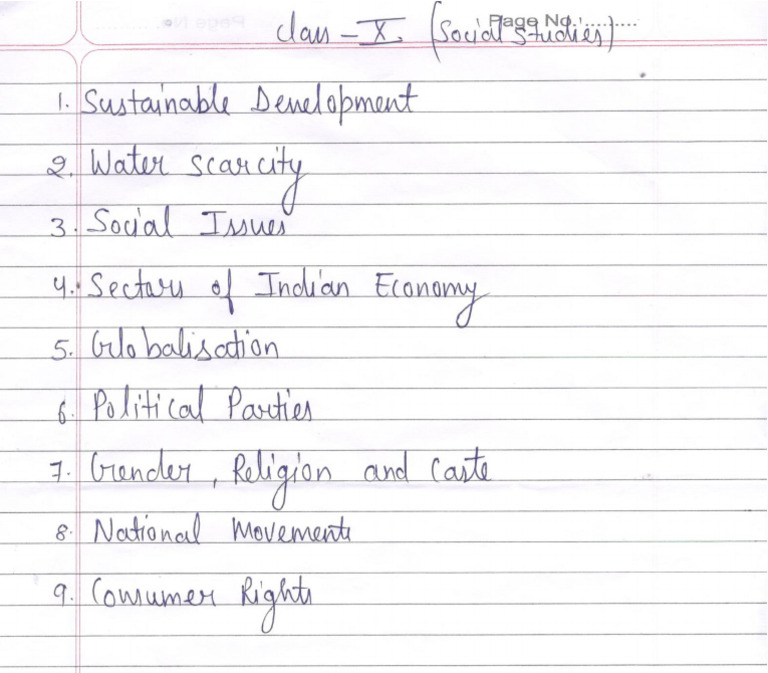 Page No.:..........
Class - X. (Social Studies)
1. Sustainable Development
2. Water scarcity
3. Social Issues
4. Sectors of Indian Economy
5. Globalisation
6. Political Parties
7. Gender, Religion and Caste
8. National Movements
9. Consumer Rights